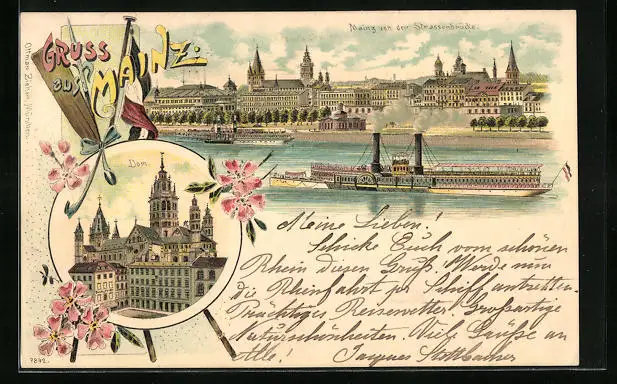 GRUSS
aus MAINZ:
Mainz von der Strassenbrücke.
Ottmar Zieher, München.
Dom.
Meine Lieben!
Schicke Euch vom schönen
Rhein diesen Gruß. Werde nun
die Rheinfahrt p. Schiff antreten.
Prächtiges Reisewetter. Großartige
Naturschönheiten. Viele Grüße an
Alle! Jacques
7892.